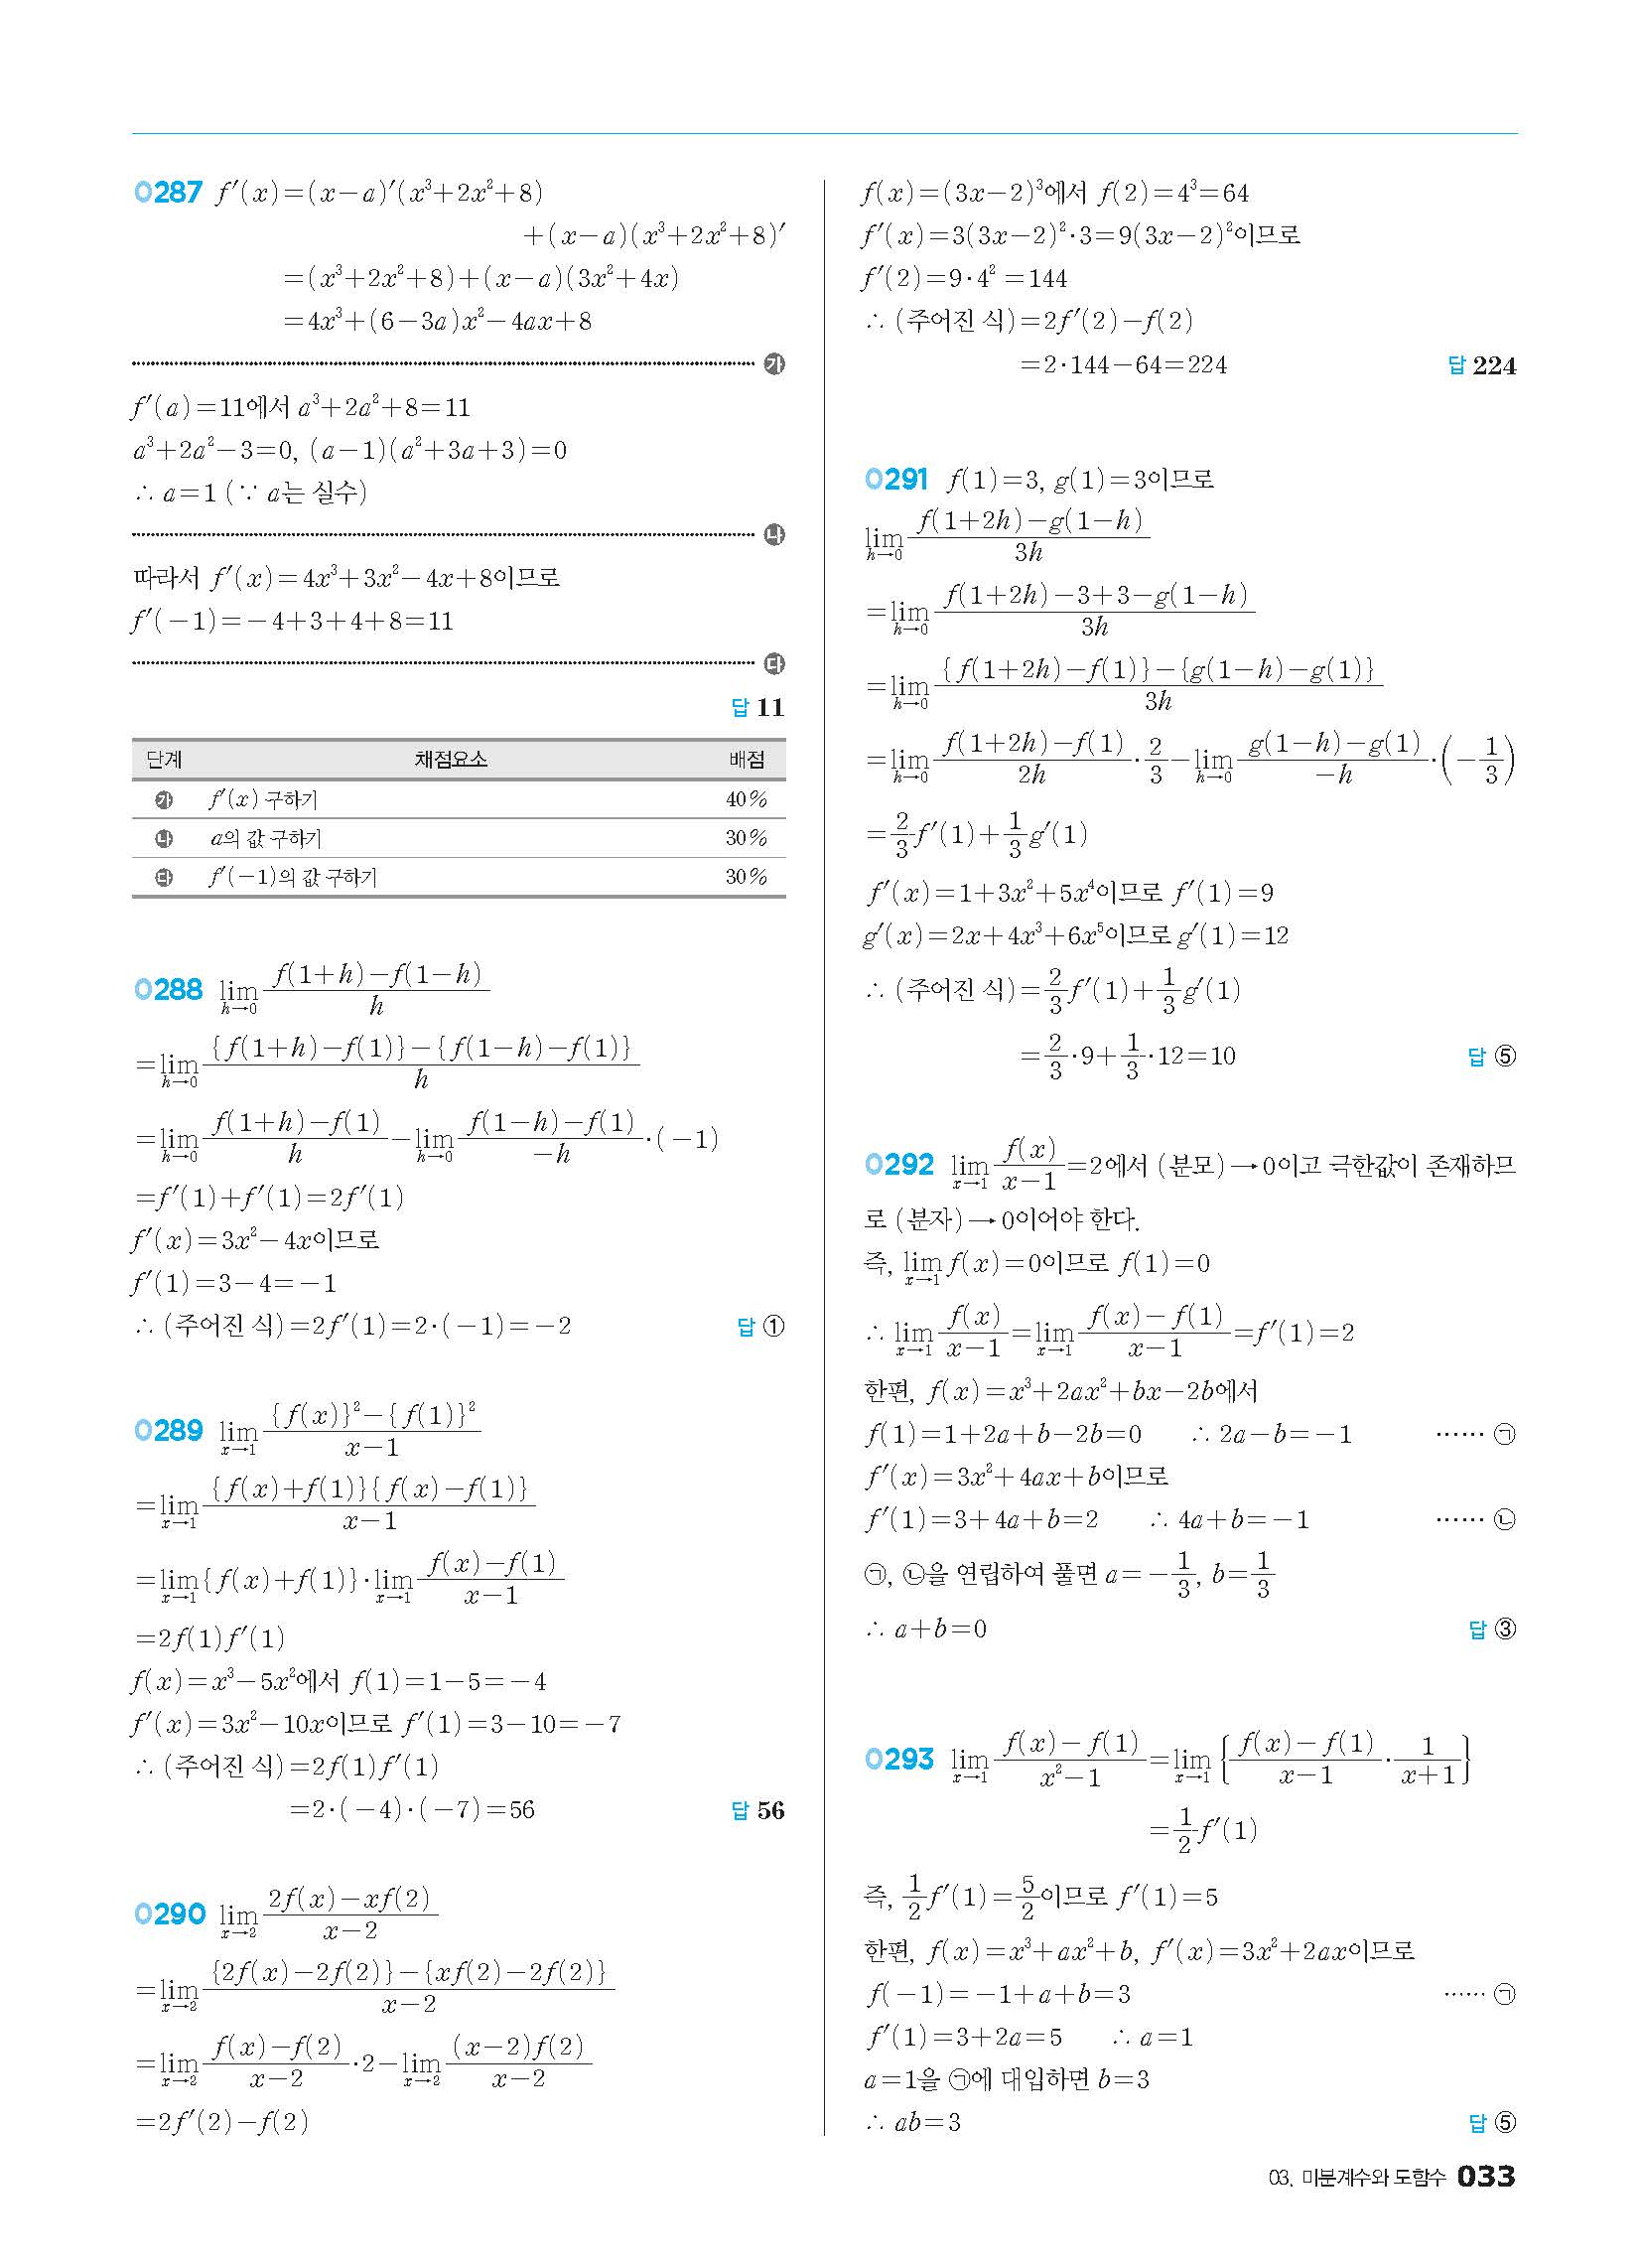 0287 f′(x)=(x−a)′(x³+2x²+8)
+(x−a)(x³+2x²+8)′
=(x³+2x²+8)+(x−a)(3x²+4x)
=4x³+(6−3a)x²−4ax+8
㉮
f′(a)=11에서 a³+2a²+8=11
a³+2a²−3=0, (a−1)(a²+3a+3)=0
∴ a=1 (∵ a는 실수)
㉯
따라서 f′(x)=4x³+3x²−4x+8이므로
f′(−1)=−4+3+4+8=11
㉰
답 11
단계 채점요소 배점
㉮ f′(x) 구하기 40%
㉯ a의 값 구하기 30%
㉰ f′(−1)의 값 구하기 30%
0288 lim_{h→0} \frac{f(1+h)−f(1−h)}{h}
=lim_{h→0} \frac{{f(1+h)−f(1)}−{f(1−h)−f(1)}}{h}
=lim_{h→0} \frac{f(1+h)−f(1)}{h}−lim_{h→0} \frac{f(1−h)−f(1)}{−h}·(−1)
=f′(1)+f′(1)=2f′(1)
f′(x)=3x²−4x이므로
f′(1)=3−4=−1
∴ (주어진 식)=2f′(1)=2·(−1)=−2 답 ①
0289 lim_{x→1} \frac{{f(x)}²−{f(1)}²}{x−1}
=lim_{x→1} \frac{{f(x)+f(1)}{f(x)−f(1)}}{x−1}
=lim_{x→1}{f(x)+f(1)}·lim_{x→1} \frac{f(x)−f(1)}{x−1}
=2f(1)f′(1)
f(x)=x³−5x²에서 f(1)=1−5=−4
f′(x)=3x²−10x이므로 f′(1)=3−10=−7
∴ (주어진 식)=2f(1)f′(1)
=2·(−4)·(−7)=56 답 56
0290 lim_{x→2} \frac{2f(x)−xf(2)}{x−2}
=lim_{x→2} \frac{{2f(x)−2f(2)}−{xf(2)−2f(2)}}{x−2}
=lim_{x→2} \frac{f(x)−f(2)}{x−2}·2−lim_{x→2} \frac{(x−2)f(2)}{x−2}
=2f′(2)−f(2)
f(x)=(3x−2)³에서 f(2)=4³=64
f′(x)=3(3x−2)²·3=9(3x−2)²이므로
f′(2)=9·4² =144
∴ (주어진 식)=2f′(2)−f(2)
=2·144−64=224 답 224
0291 f(1)=3, g(1)=3이므로
lim_{h→0} \frac{f(1+2h)−g(1−h)}{3h}
=lim_{h→0} \frac{f(1+2h)−3+3−g(1−h)}{3h}
=lim_{h→0} \frac{{f(1+2h)−f(1)}−{g(1−h)−g(1)}}{3h}
=lim_{h→0} \frac{f(1+2h)−f(1)}{2h}·\frac{2}{3}−lim_{h→0} \frac{g(1−h)−g(1)}{−h}·(−\frac{1}{3})
=\frac{2}{3}f′(1)+\frac{1}{3}g′(1)
f′(x)=1+3x²+5x⁴이므로 f′(1)=9
g′(x)=2x+4x³+6x⁵이므로 g′(1)=12
∴ (주어진 식)=\frac{2}{3}f′(1)+\frac{1}{3}g′(1)
=\frac{2}{3}·9+\frac{1}{3}·12=10 답 ⑤
0292 lim_{x→1} \frac{f(x)}{x−1}=2에서 (분모)→0이고 극한값이 존재하므
로 (분자)→0이어야 한다.
즉, lim_{x→1} f(x)=0이므로 f(1)=0
∴ lim_{x→1} \frac{f(x)}{x−1}=lim_{x→1} \frac{f(x)−f(1)}{x−1}=f′(1)=2
한편, f(x)=x³+2ax²+bx−2b에서
f(1)=1+2a+b−2b=0 ∴ 2a−b=−1 …… ㉠
f′(x)=3x²+4ax+b이므로
f′(1)=3+4a+b=2 ∴ 4a+b=−1 …… ㉡
㉠, ㉡을 연립하여 풀면 a=−\frac{1}{3}, b=\frac{1}{3}
∴ a+b=0 답 ③
0293 lim_{x→1} \frac{f(x)−f(1)}{x²−1}=lim_{x→1} {\frac{f(x)−f(1)}{x−1}·\frac{1}{x+1}}
=\frac{1}{2}f′(1)
즉, \frac{1}{2}f′(1)=\frac{5}{2}이므로 f′(1)=5
한편, f(x)=x³+ax²+b, f′(x)=3x²+2ax이므로
f(−1)=−1+a+b=3 …… ㉠
f′(1)=3+2a=5 ∴ a=1
a=1을 ㉠에 대입하면 b=3
∴ ab=3 답 ⑤
03. 미분계수와 도함수 033